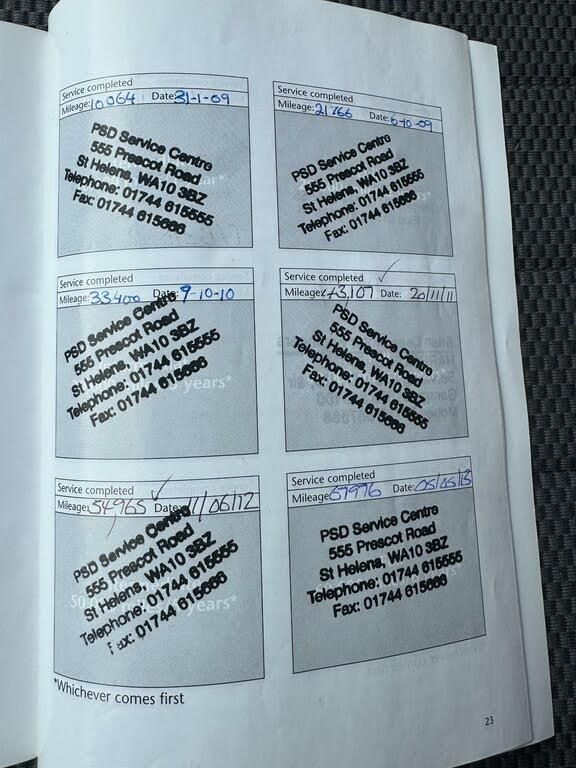 Service completed
Mileage: 10064 Date: 31-1-09
PSD Service Centre
555 Prescot Road
St Helens, WA10 3BZ
Telephone: 01744 615555
Fax: 01744 615666
Service completed
Mileage: 21766 Date: 6-10-09
PSD Service Centre
555 Prescot Road
St Helens, WA10 3BZ
Telephone: 01744 615555
Fax: 01744 615666
Service completed
Mileage: 33400 Date: 9-10-10
PSD Service Centre
555 Prescot Road
St Helens, WA10 3BZ
years*
Telephone: 01744 615555
Fax: 01744 615666
Service completed
Mileage: 43,107 Date: 20/11/11
PSD Service Centre
555 Prescot Road
St Helens, WA10 3BZ
Telephone: 01744 615555
Fax: 01744 615666
Service completed
Mileage: 54965 Date: 11/06/12
PSD Service Centre
555 Prescot Road
St Helens, WA10 3BZ
years*
Telephone: 01744 615555
Fax: 01744 615666
Service completed
Mileage: 67976 Date: 05/05/13
PSD Service Centre
555 Prescot Road
St Helens, WA10 3BZ
Telephone: 01744 615555
Fax: 01744 615666
*Whichever comes first
23